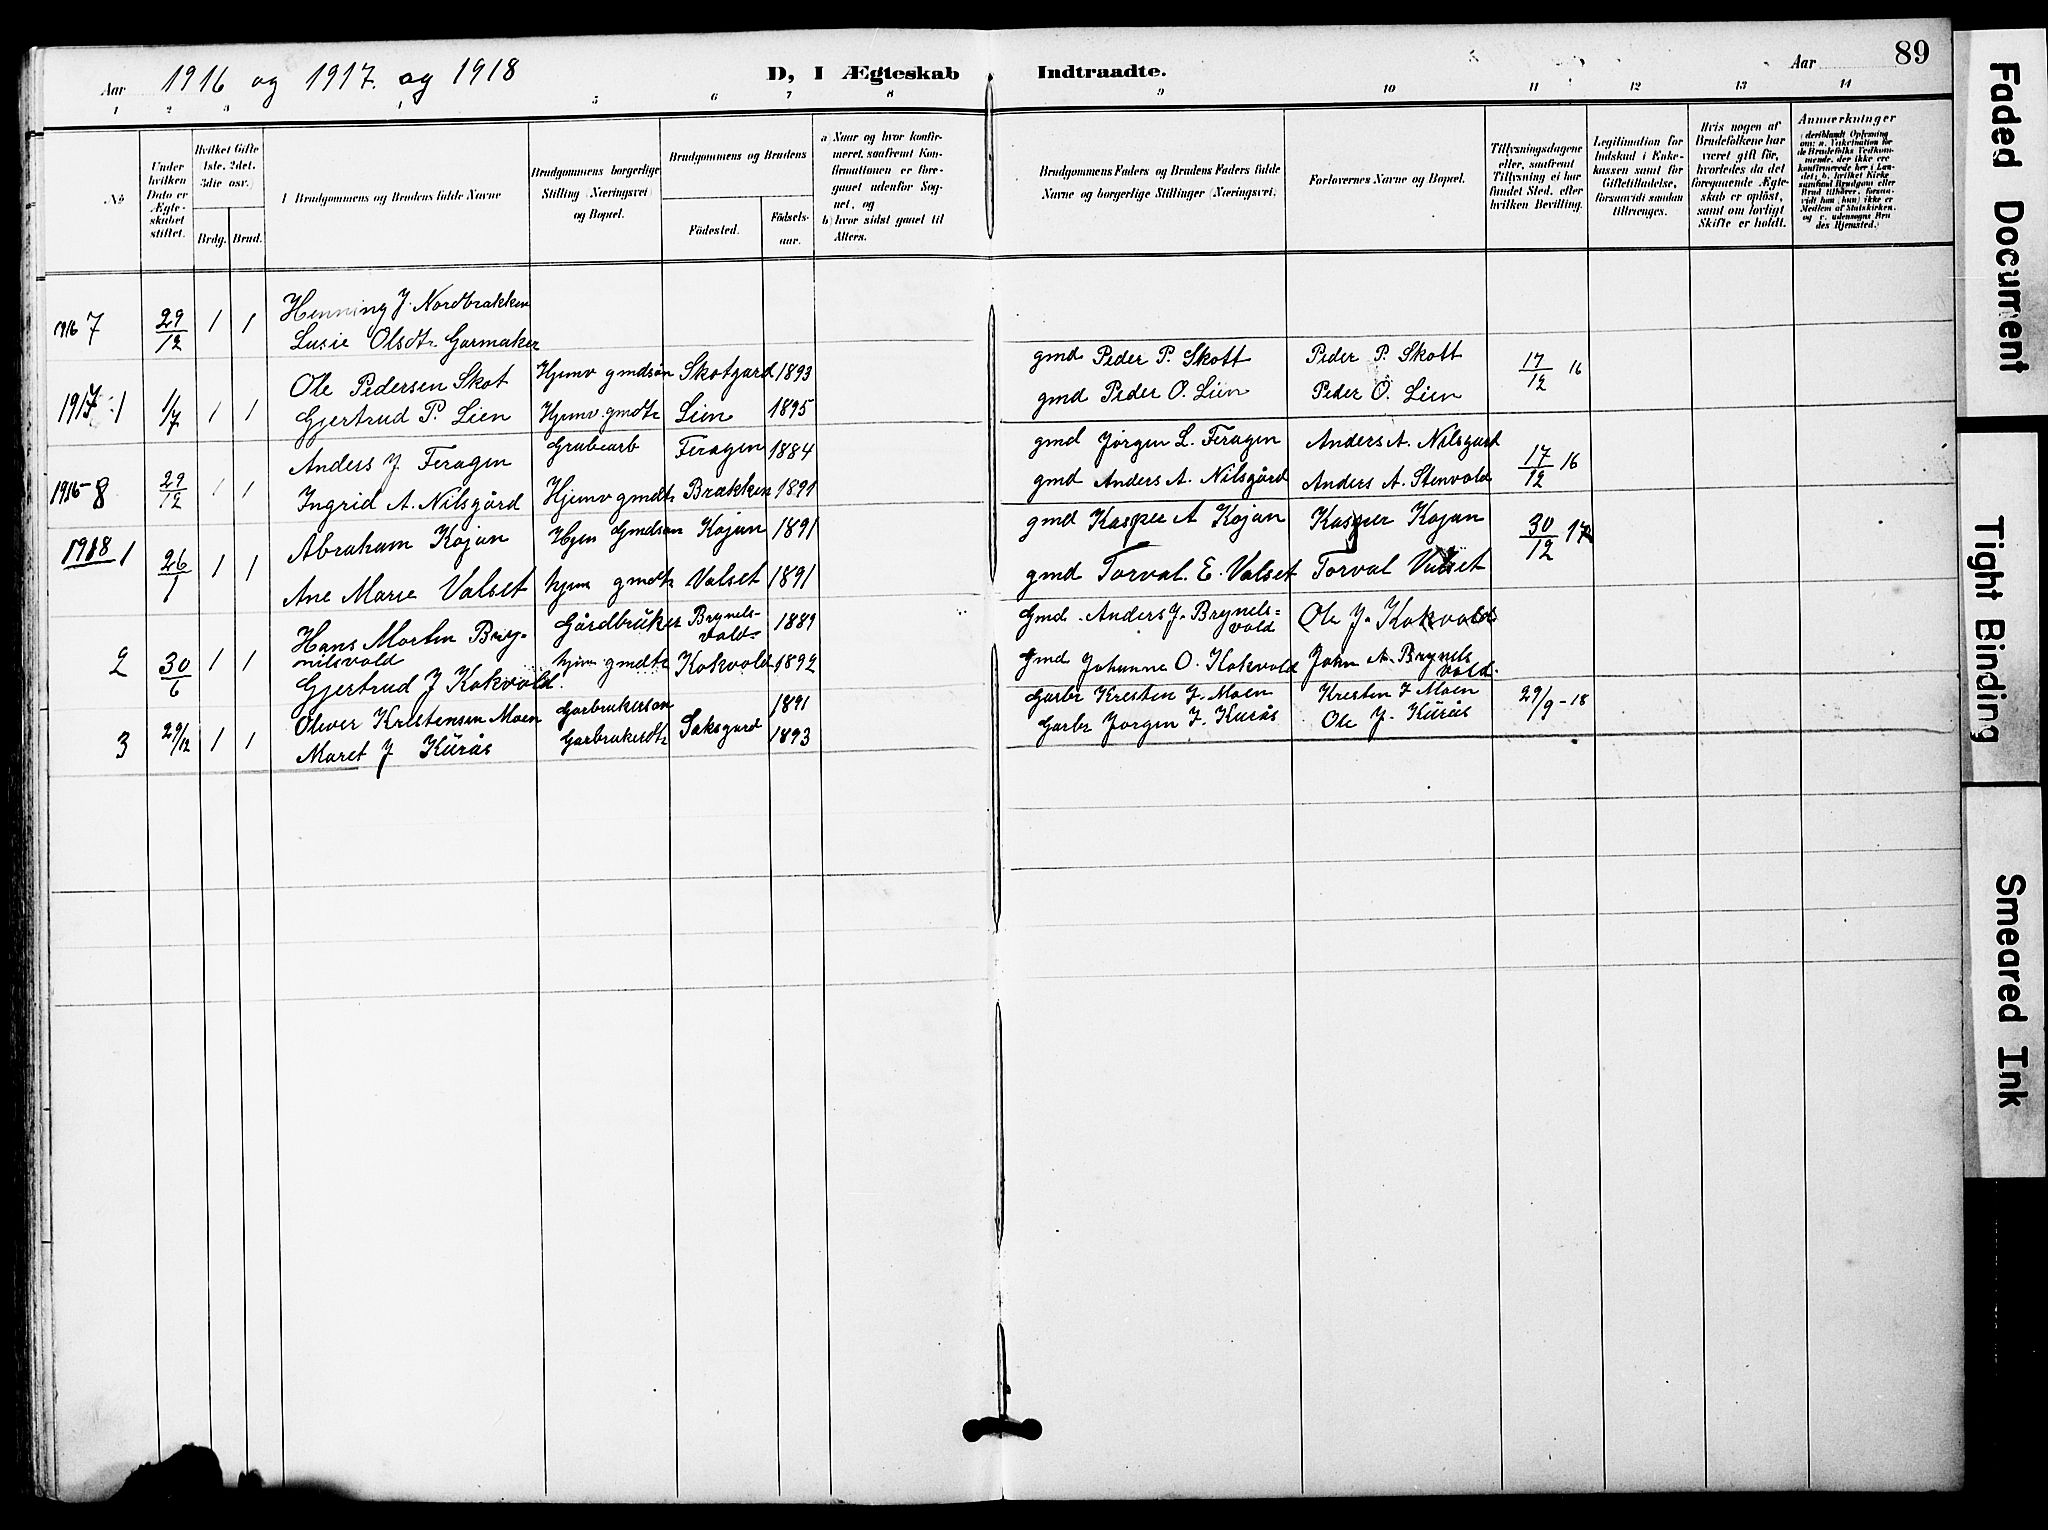 Aar 1916 og 1917. og 1918
D, I Ægteskab Indtraadte.
Aar 89
1 2 3 5 6 7 8 9 10 11 12 13 14
No
Under hvilken Dato er Ægteskabet stiftet.
Hvilket Gifte 1ste. 2det. 3die osv.)
Brdg. Brud.
Brudgommens og Brudens fulde Navne
Brudgommens borgerlige Stilling (Næringsvei) og Bopæl.
Brudgommens og Brudens
Fødested.
Fødselsaar.
a Naar og hvor konfirmeret, saafremt Konfirmationen er foregaaet udenfor Sognet, og
b) hvor sidst gaaet til Alters.
Brudgommens Faders og Brudens Faders fulde Navne og borgerlige Stillinger (Næringsvei.
Forlovernes Navne og Bopæl.
Tillysningsdagene eller, saafremt Tillysning ei har fundet Sted, efter hvilken Bevilling.
Legitimation for Indskud i Enkekassen samt for Giftetilladelse, forsaavidt saadan tiltrænges.
Hvis nogen af Brudefolkene har været gift før, hvorledes da det foregaaende Ægteskab er opløst, samt om lovligt Skifte er holdt.
Anmærkninger
1916 7 29/12 1 1 Henning J. Nordbrakken
Lusie Olsdtr Garmaker
1917 1 1/7 1 1 Ole Pedersen Skot Hjemv gmdsøn Skotgard 1893 gmd Peder P. Skott Peder P. Skott 17/12 16
Gjertrud P. Lien Hjemv. gmdtr Lien 1895 gmd Peder O. Lien Peder O. Lien
1916 8 29/12 1 1 Anders J Feragen Grubearb Feragen 1884 gmd Jørgen L. Feragen Anders A. Nilsgard 17/12 16
Ingrid A. Nilsgård Hjemv gmdtr Brækken 1891 gmd Anders A. Nilsgård Anders A. Stenvold
1918 1 26/1 1 1 Abraham Kojan Hjem Gmdsøn Kojan 1891 gmd Kasper A Kojan Kasper Kojan 30/12 17
Ane Marie Valset hjem gmdtr Valset 1891 gmd Torval. E. Valset Torval Valset
2 30/6 1 1 Hans Morten Brynilsvold Gårdbrüker Brynelsvold 1889 Gmd. Anders J. Brynelsvold Ole J. Kokvold
Gjertrud J Kokvold. hjem gmdtr Kokvold 1892 gmd Johanne O. Kokvold John A. Brynelsvold.
3 29/12 1 1 Oliver Kristensen Moen Garbrukersøn 1891 Garbr Kresten J. Moen Kresten J Moen 29/9-18
Maret J Kürås Garbrukerdtr Saksgard 1893 Garbr Jorgen J. Kurås Ole J. Kürås
Faded Document
Tight Binding
Smeared Ink